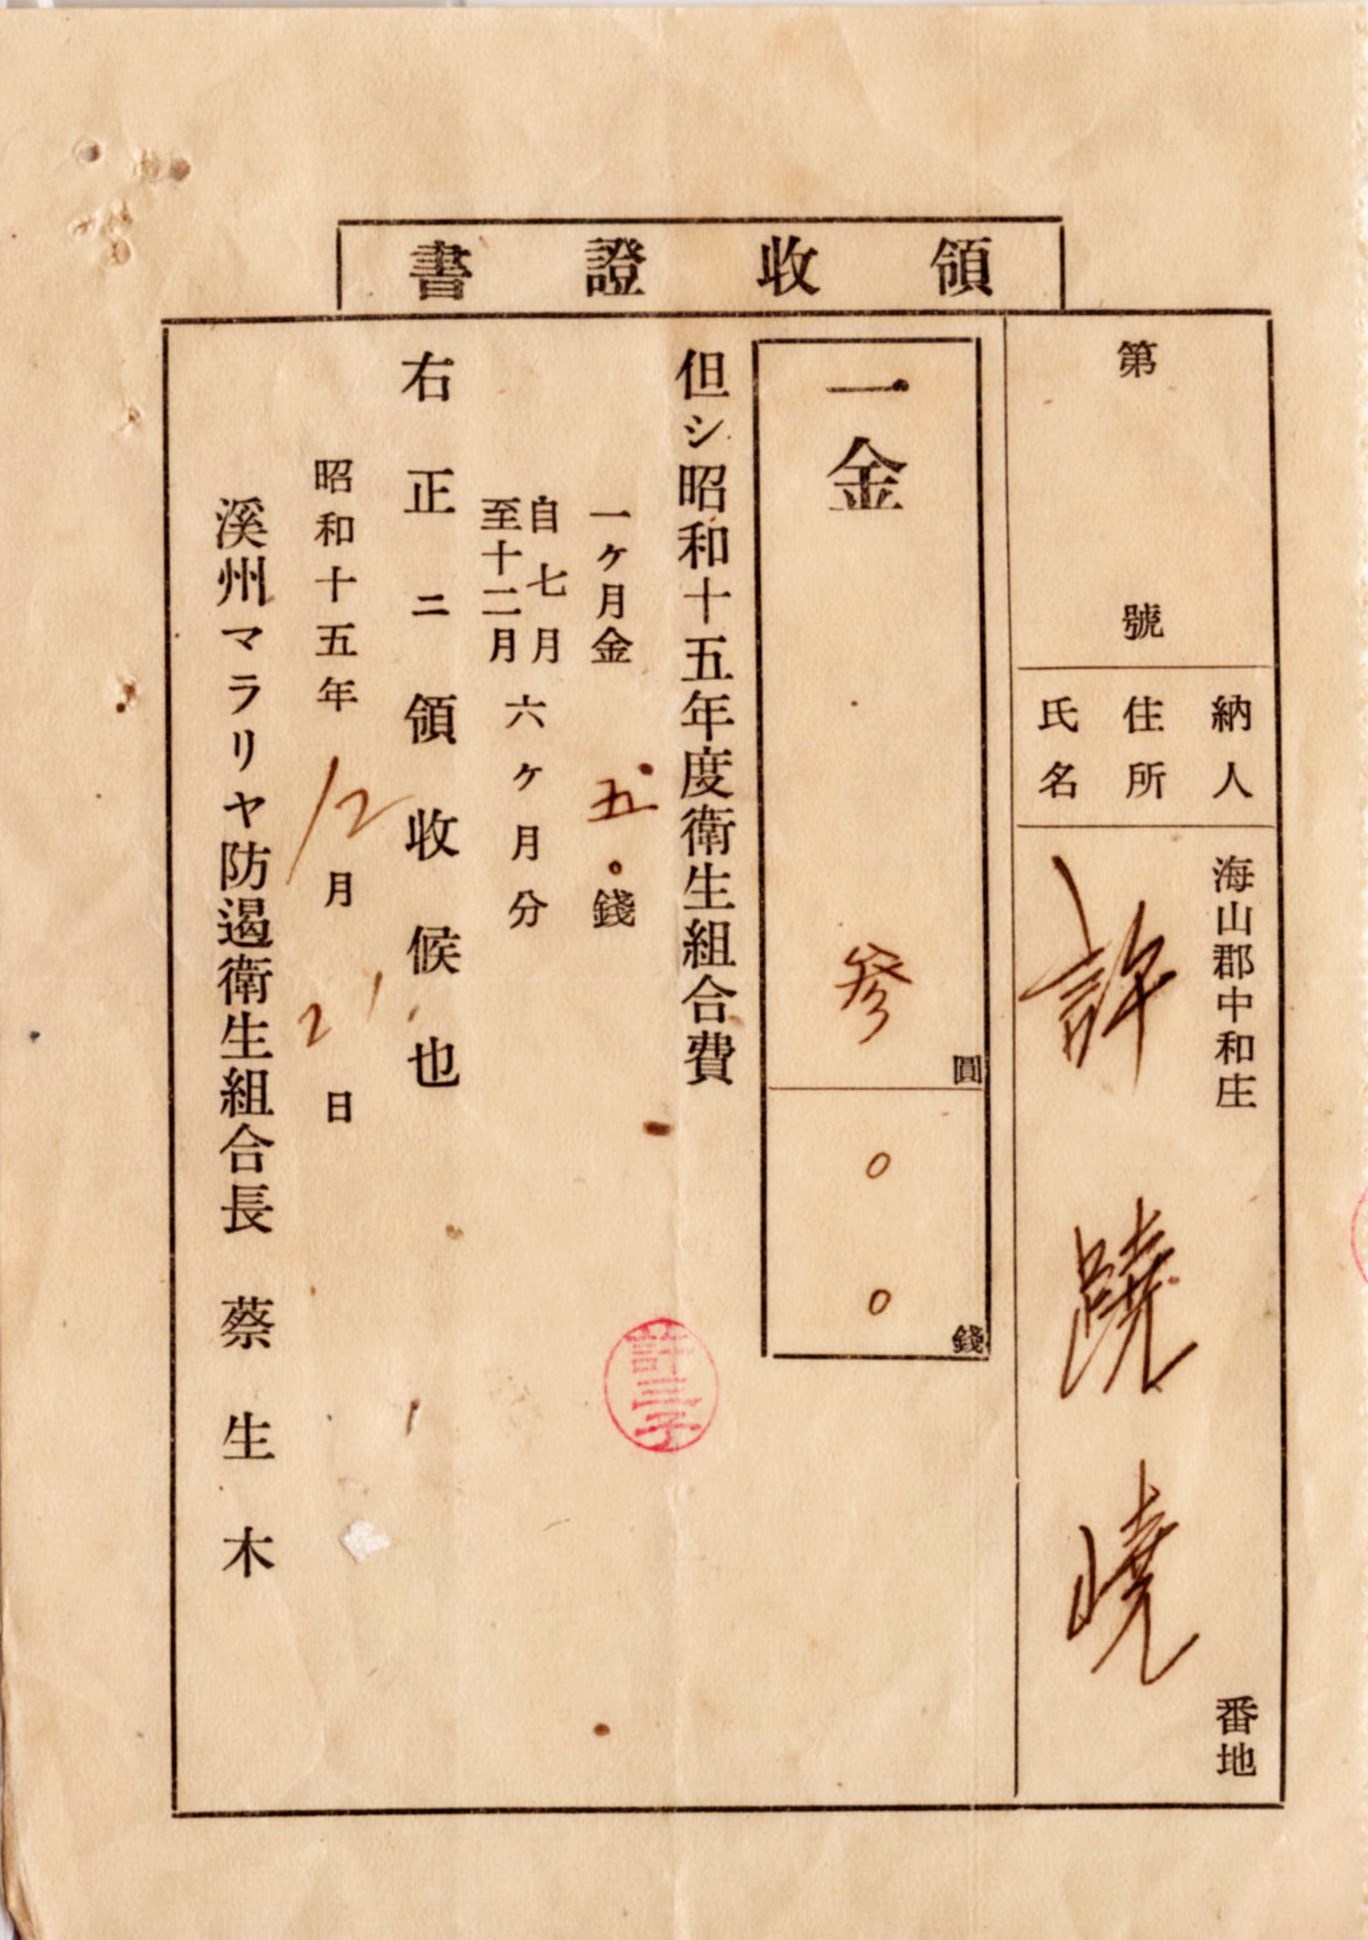 領收證書
第 號
納人
住所
氏名
海山郡中和庄 番地
許 蹺 嶢
一金 參圓〇〇錢
但シ昭和十五年度衛生組合費
一ケ月金五〇錢
自七月
至十二月
六ケ月分
右正ニ領收候也
昭和十五年12月21日
溪州マラリヤ防遏衛生組合長 蔡生木
許三子